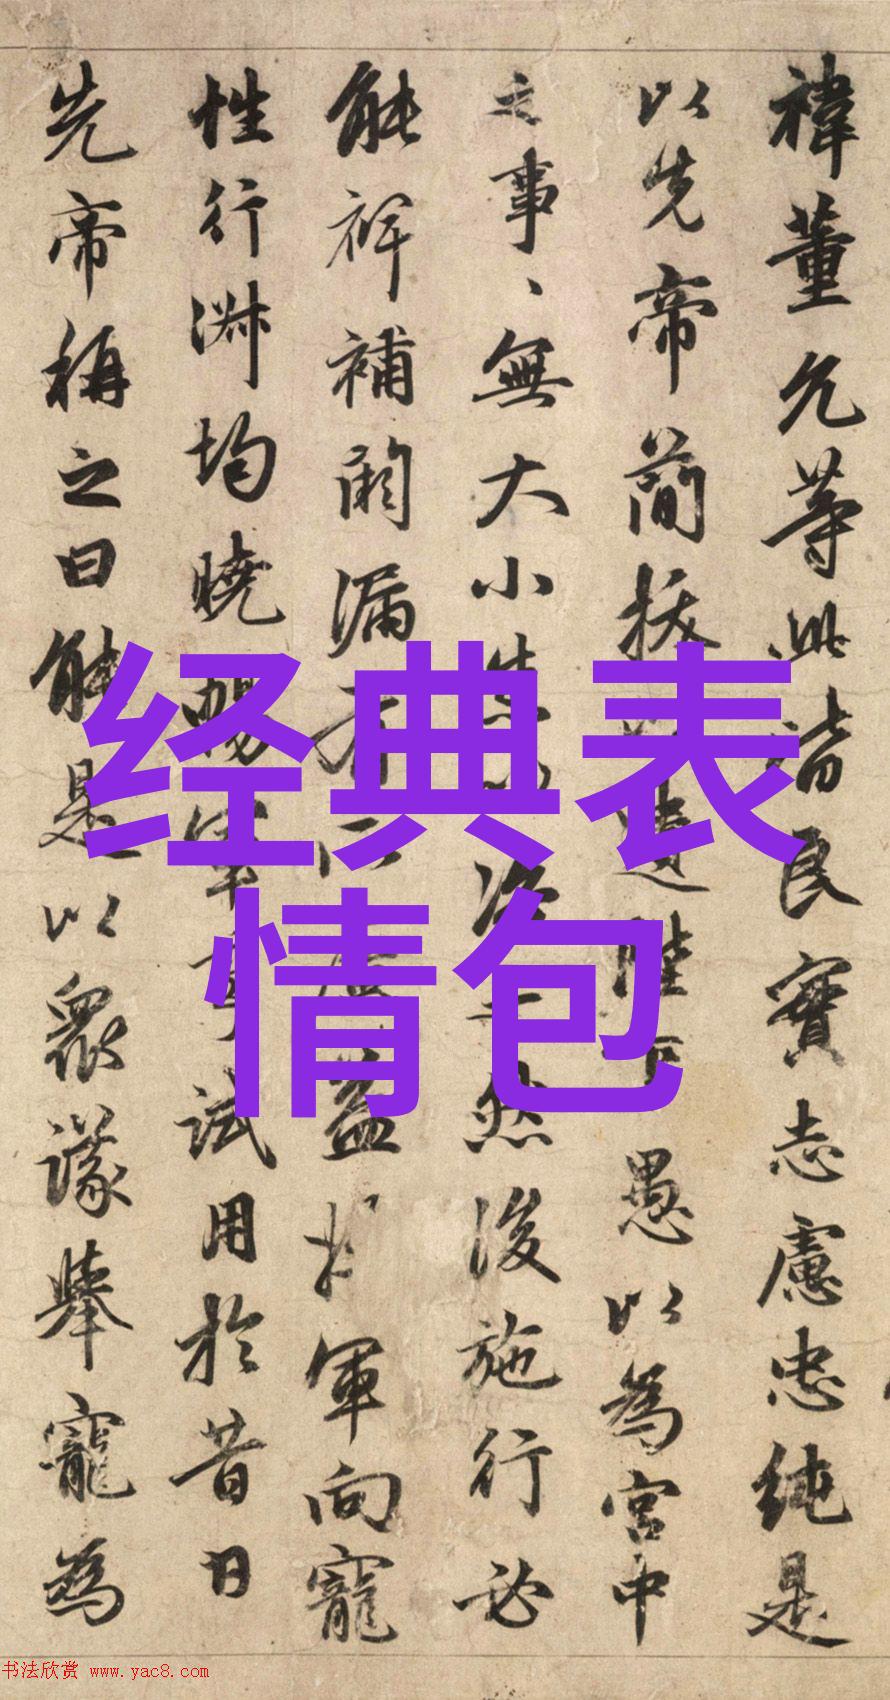 禕董允等此皆良實志慮忠純是
以先帝簡拔遺陛下愚以為宮中
之事、無大小悉咨然後施行必
能裨補闕漏有益軍向寵
性行淑均曉暢軍事試用於昔日
先帝稱之曰能是以眾議舉寵為
经典表
情包
书法欣赏 www.yac8.com